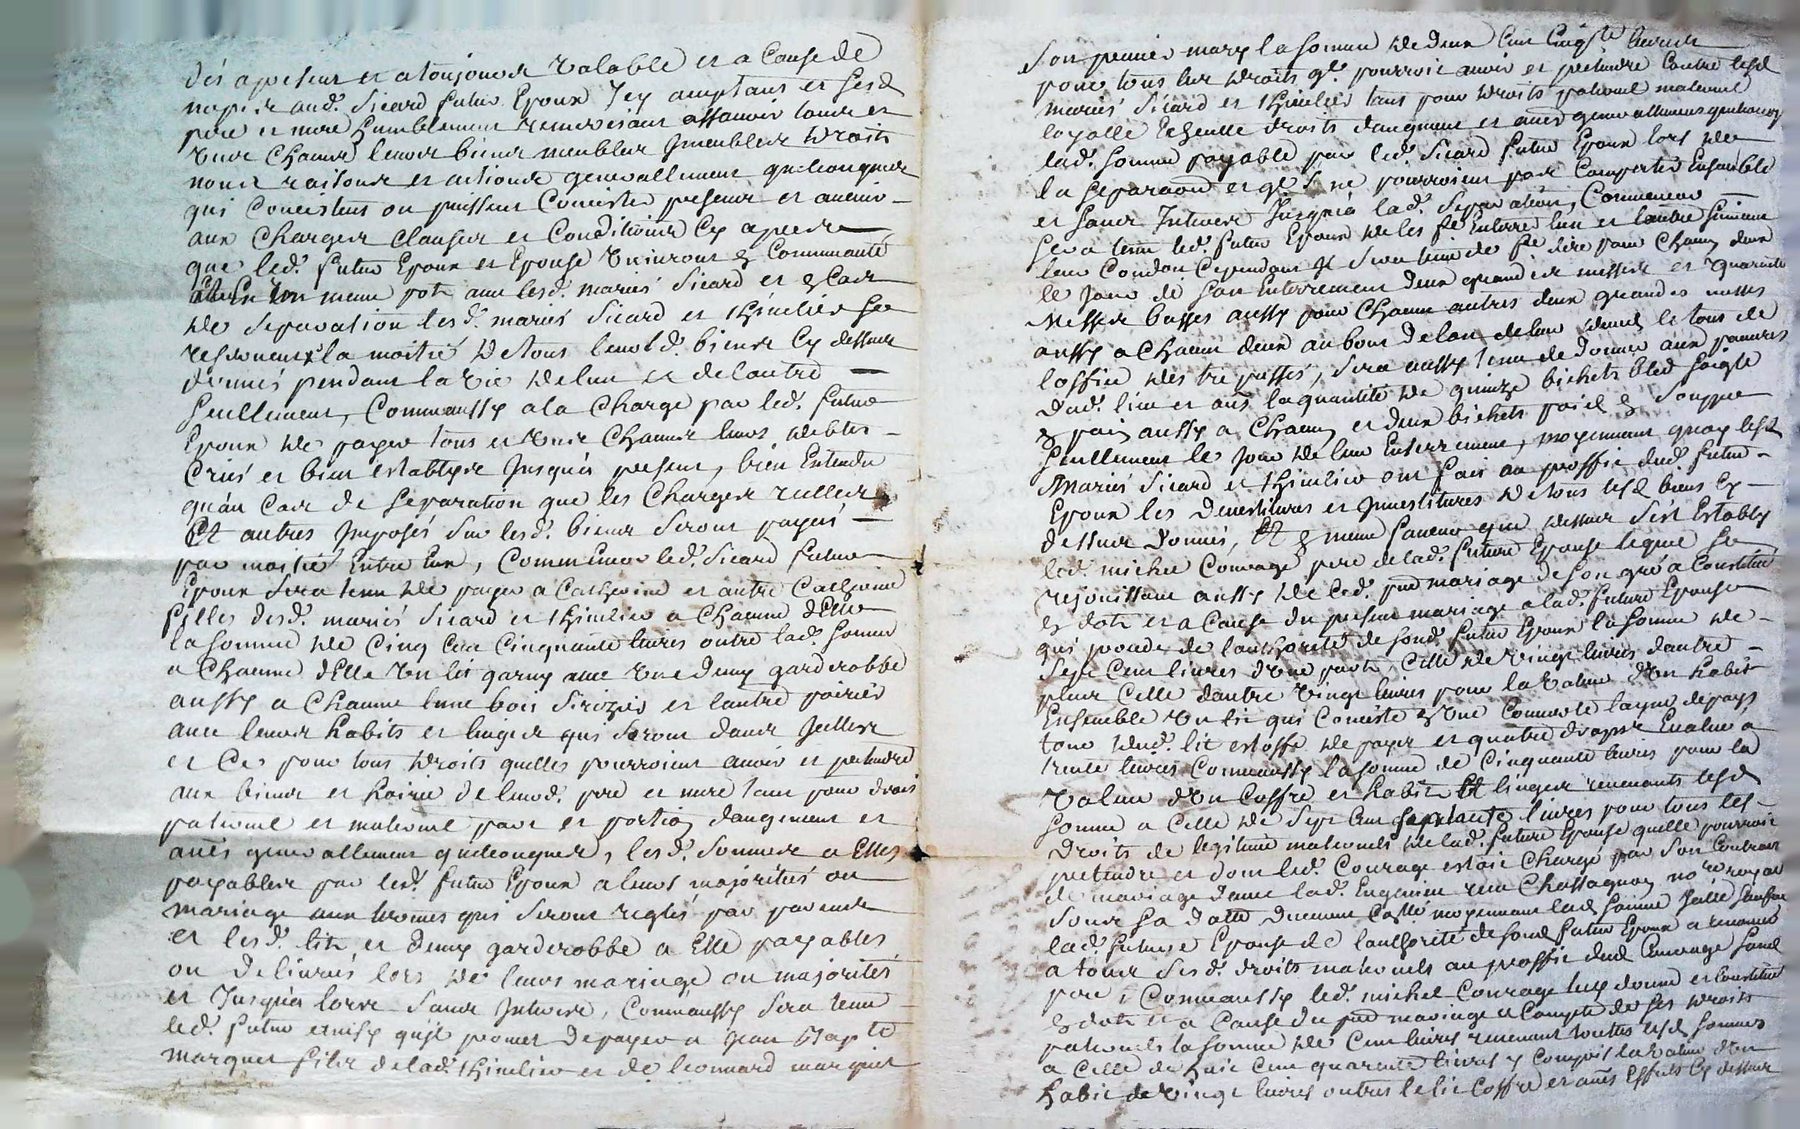 dès a present et a toujours valable et a Cause de
nopces aud.t Sicard futur Epoux Icy acceptant et sesd.
pere et mere humblement remerciant assavoir tous et
uns Chacuns leurs biens meubles Immeubles droits
noms raisons et actions generallement quelconques
qui Concistent ou puissent Concister presents et avenir
aux Charges Clauses et Conditions Cy apres
que led.t futur Epoux et Epouse vivront en Communauté
un meme pot avec lesd.t mariés Sicard et en Cas
de separation lesd.t mariés Sicard et thivelier se
la moitié de tous leursd.t biens Cy dessus
donnés pendant la vie de lun et de lautre
seullement, Commeaussy a la Charge par led.t futur
Epoux de payer tous et uns Chacuns leurs debtes
Crées et bien establyes Jusqu'a present, bien Entendu
qu'au Cas de separation que les Charges reelles
Et autres Imposés sur lesd.t biens seront payés
par moitié Entre Eux, Comme led.t Sicard futur
Epoux sera tenu de payer a Catherine et autre Catherine
filles desd.t mariés Sicard et thivelier a Chacune d'Elle
la somme de Cinq Cent Cinquante livres outre lad.t somme
a Chacune d'Elle un lit garny avec une demy garderobbe
aussy a Chacune lune bois Sirizier et lautre poirier
avec leurs habits et linges qui seront dans Icelles
et Ce pour tous droits quelles pourroient avoir et pretendre
aux biens et hoirie de leurd.t pere et mere tant pour droit
paternel et maternel part et portion daugment et
autres generallement quelconques, lesd.t sommes a Elles
payables par led.t futur Epoux a leurs majorités ou
mariage aux termes qui seront reglés par parents
et lesd.t lits et demy garderobbe a Elle payables
ou delivrés lors de leurs mariage ou majorités
et Jusqu'a lors sans Interets, Commeaussy sera tenu
led.t futur qu'il promet de payer a Jean Bapte
marquet fils de lad.t thivelier et de leonnard marquet
Son premier mary la somme de deux Cent livres
pour tous les droits q.l pourroit avoir et pretendre Contre lesd.
mariés Sicard et thivelier tant pour droits paternel maternel
droits daugment et autres generallement quelconq
lad.t somme payable par led.t Sicard futur Epoux lors de
la et q.l ne pourroient pas Compatir Ensemble
et sans Interets Jusqu'a lad.t separation, Comme
sera tenu led.t futur Epoux de les fe Enterrer lun et lautre suivant
leur Condon Cependant Il sera tenu de fe dire pour Chacun deux
le Jour de son Enterrement deux grandes messes et quarante
Messes basses aussy pour Chacun autres deux grandes messes
aussy a Chacun deux au bout de lan de leur deces le tous de
loffice des trepassés, sera aussy tenu de donner aux pauvres
dud.t lieu et autres la quantité de quinze bichets bled seigle
en pain aussy a Chacun et deux bichets poid en Souppe
seullement le Jour de leur Enterrement, moyennant quoy lesd
Mariés Sicard et thivelier ont fait au proffit dud.t futur
Epoux les Devestitures et Investitures de tous lesd biens Cy
dessus donnés, Et en meme faveur que dessus s'est Estably
led.t michel Courage pere de lad.t future Epouse lequel se
rejouissant aussy de led.t pnt mariage de son gré a Constitué
en dot et a Cause du present mariage a lad.t future Epouse
qui procede de lauthorité de sond.t futur Epoux la somme de
Sept Cent livres d'une parte, Celle de vingt livres dautre
plus Celle dautre vingt livres pour la valeur d'un habit
Ensemble un lit qui Conciste en une Couverte layne de pays
tour dud.t lit estoffe de pays et quatre drapts Evalué a
trente livres Commeaussy la somme de Cinquante livres pour la
valeur d'un Coffre et habits Et linges revenants lesd
somme a Celle de Sept Cent septante livres pour tous les
Droits de legitime maternels de lad.t future Epouse quelle pourroit
pretendre et dont led.t Courage estoit Chargé par son Contrat
de mariage avec lad.t Eugenie reçu Chassagnon no.re royal
sous sa datte moyennant lad somme
lad.t future Epouse de lauthorité de sond futur Epoux a renoncé
a tous sesd.t droits maternels au proffit dud Courage sond
pere, Commeaussy led.t michel Courage luy donne et Constitue
en dot et a Cause du pnt mariage a Compte de ses droits
paternels la somme de Cent livres revenant touttes lesd sommes
a Celle de huit Cent quarante livres y Compris la valeur d'un
habit de vingt livres outres le lit Coffre et autres Effets Cy dessus